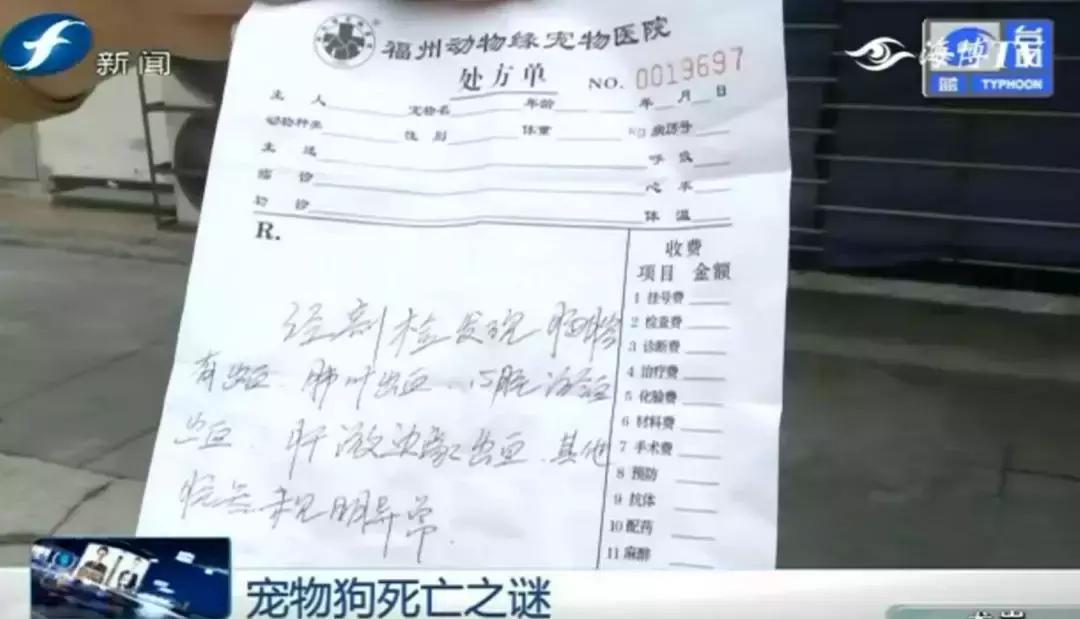 新闻
海博TV
台风
蓝 TYPHOON
福州动物缘宠物医院
处方单 NO. 0019697
主人 宠物名 年龄 年 月 日
动物种类 性别 体重 kg 病历号
主述 呼吸
临诊 心率
初诊 体温
R.
收费
项目 金额
1 挂号费
2 检查费
3 诊断费
4 治疗费
5 化验费
6 材料费
7 手术费
8 预防
9 抗体
10 配药
11 麻醉
经剖检发现胸腔
有出血、肺叶出血、心脏
出血、肝边缘出血、其他
未见明异常.
宠物狗死亡之谜